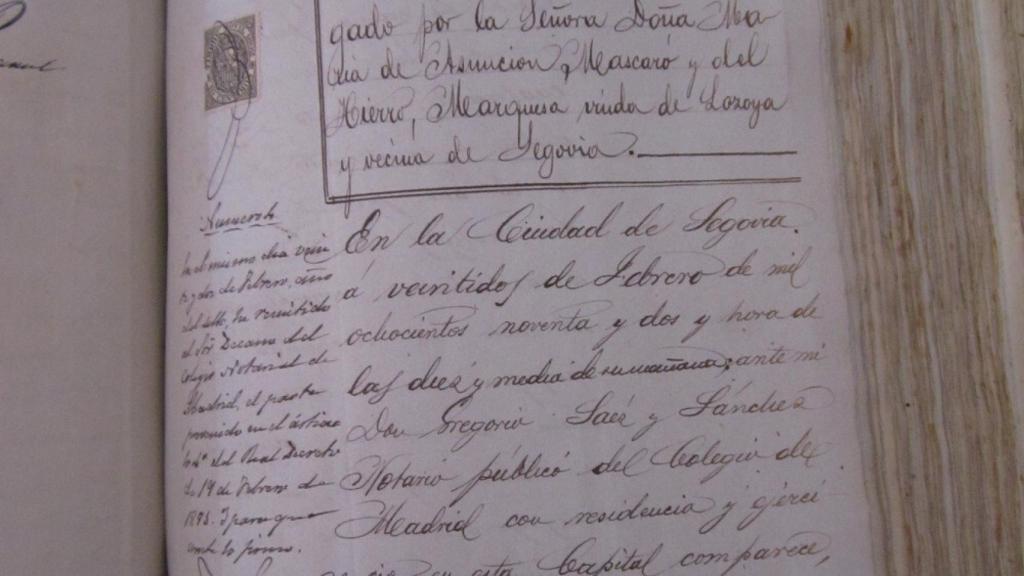 gado por la Señora Doña Ma-
ria de Asuncion Mascaró y del
Hierro, Marquesa viuda de Lozoya
y vecina de Segovia.
En la Ciudad de Segovia.
á veintidos de Febrero de mil
ochocientos noventa y dos y hora de
las diez y media de su mañana; ante mi
Don Gregorio Saéz y Sánchez
Notario público del Colegio de
Madrid con residencia y ejerci
cio en esta Capital comparece,
En el mismo dia vein
te y dos de Febrero, año
del sello, he remitido
al Sr. Decano del
Colegio Notarial de
Madrid, el parte
prevenido en el artícu
lo del Real Decreto
de 14 de Febrero de
Y para que
conste lo firmo.